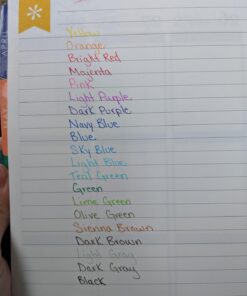 Yellow
Orange
Bright Red
Majenta
Pink
Light Purple
Dark Purple
Navy Blue
Blue
Sky Blue
Light Blue
Teril Green
Green
Lime Green
Olive Green
Sienna Brown
Dark Brown
Light Gray
Dark Gray
Black